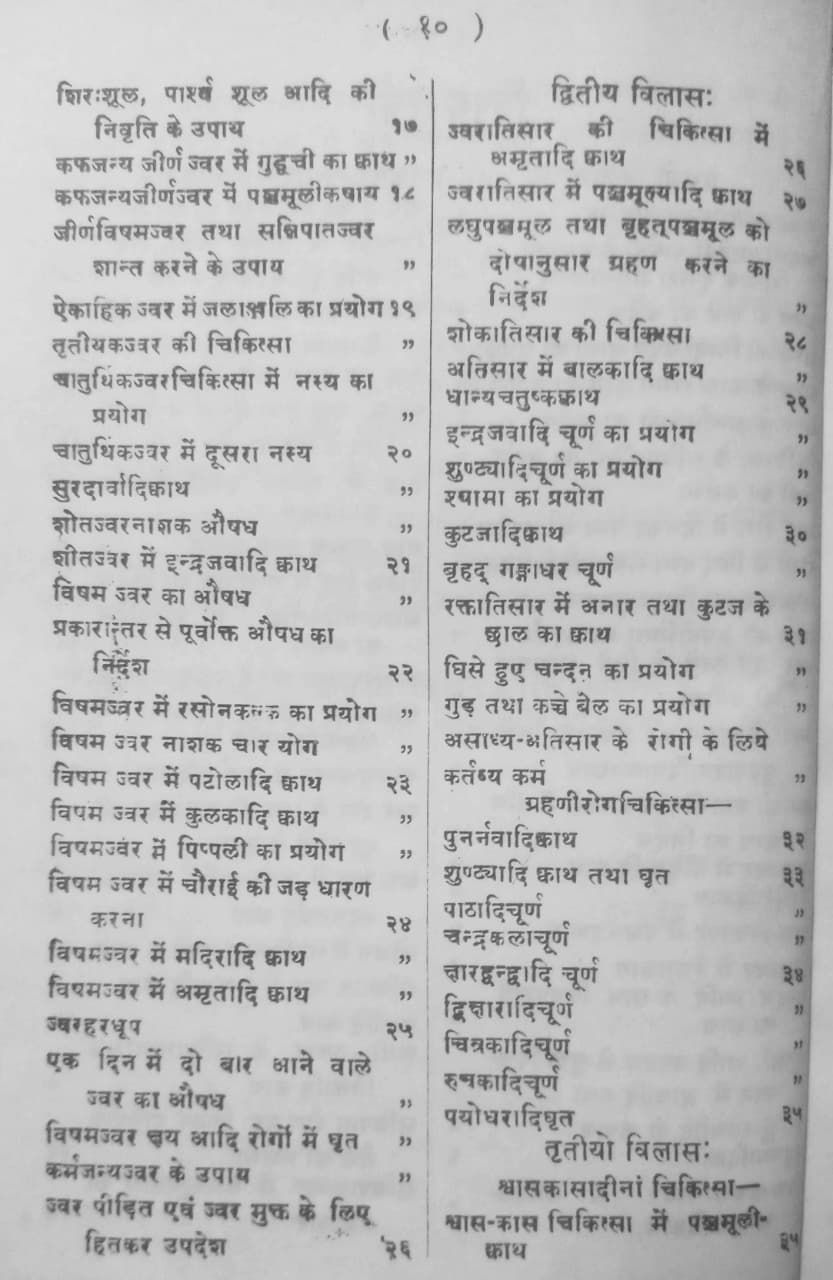 ( १० )
शिरःशूल, पार्श्व शूल आदि की
निवृति के उपाय १७
कफजन्य जीर्ण ज्वर में गुडूची का क्वाथ ”
कफजन्यजीर्णज्वर में पञ्चमूलीकषाय १८
जीर्णविषमज्वर तथा सन्निपातज्वर
शान्त करने के उपाय ”
ऐकाहिक ज्वर में जलाञ्जलि का प्रयोग १९
तृतीयकज्वर की चिकित्सा ”
चातुर्थिकज्वरचिकित्सा में नस्य का
प्रयोग ”
चातुर्थिकज्वर में दूसरा नस्य २०
सुरदार्वादिक्वाथ ”
शीतज्वरनाशक औषध ”
शीतज्वर में इन्द्रजवादि क्वाथ २१
विषम ज्वर का औषध ”
प्रकारान्तर से पूर्वोक्त औषध का
निर्देश २२
विषमज्वर में रसोनकल्क का प्रयोग ”
विषम ज्वर नाशक चार योग ”
विषम ज्वर में पटोलादि क्वाथ २३
विषम ज्वर में कुलकादि क्वाथ ”
विषमज्वर में पिप्पली का प्रयोग ”
विषम ज्वर में चौराई की जड़ धारण
करना २४
विषमज्वर में मदिरादि क्वाथ ”
विषमज्वर में अमृतादि क्वाथ ”
ज्वरहरधूप २५
एक दिन में दो बार आने वाले
ज्वर का औषध ”
विषमज्वर क्षय आदि रोगों में घृत ”
कर्मजन्यज्वर के उपाय ”
ज्वर पीड़ित एवं ज्वर मुक्त के लिए
हितकर उपदेश २६
द्वितीय विलासः
ज्वरातिसार की चिकित्सा में
अमृतादि क्वाथ २६
ज्वरातिसार में पञ्चमूल्यादि क्वाथ २७
लघुपञ्चमूल तथा बृहत्पञ्चमूल को
दोषानुसार ग्रहण करने का
निर्देश ”
शोकातिसार की चिकित्सा २८
अतिसार में बालकादि क्वाथ ”
धान्यचतुष्कक्वाथ २९
इन्द्रजवादि चूर्ण का प्रयोग ”
शुण्ट्यादिचूर्ण का प्रयोग ”
श्यामा का प्रयोग ”
कुटजादिक्वाथ ३०
बृहद् गङ्गाधर चूर्ण ”
रक्तातिसार में अनार तथा कुटज के
छाल का क्वाथ ३१
घिसे हुए चन्दन का प्रयोग ”
गुड़ तथा कच्चे बेल का प्रयोग ”
असाध्य-अतिसार के रोगी के लिये
कर्तव्य कर्म ”
ग्रहणीरोगचिकित्सा—
पुनर्नवादिक्वाथ ३२
शुण्ट्यादि क्वाथ तथा घृत ३३
पाठादिचूर्ण ”
चन्द्रकलाचूर्ण ”
क्षारद्वन्द्वादि चूर्ण ३४
द्विक्षारादिचूर्ण ”
चित्रकादिचूर्ण ”
रुचकादिचूर्ण ”
पयोधरादिघृत ३५
तृतीयो विलासः
श्वासकासादीनां चिकित्सा—
श्वास-कास चिकित्सा में पञ्चमूली-
क्वाथ ३५